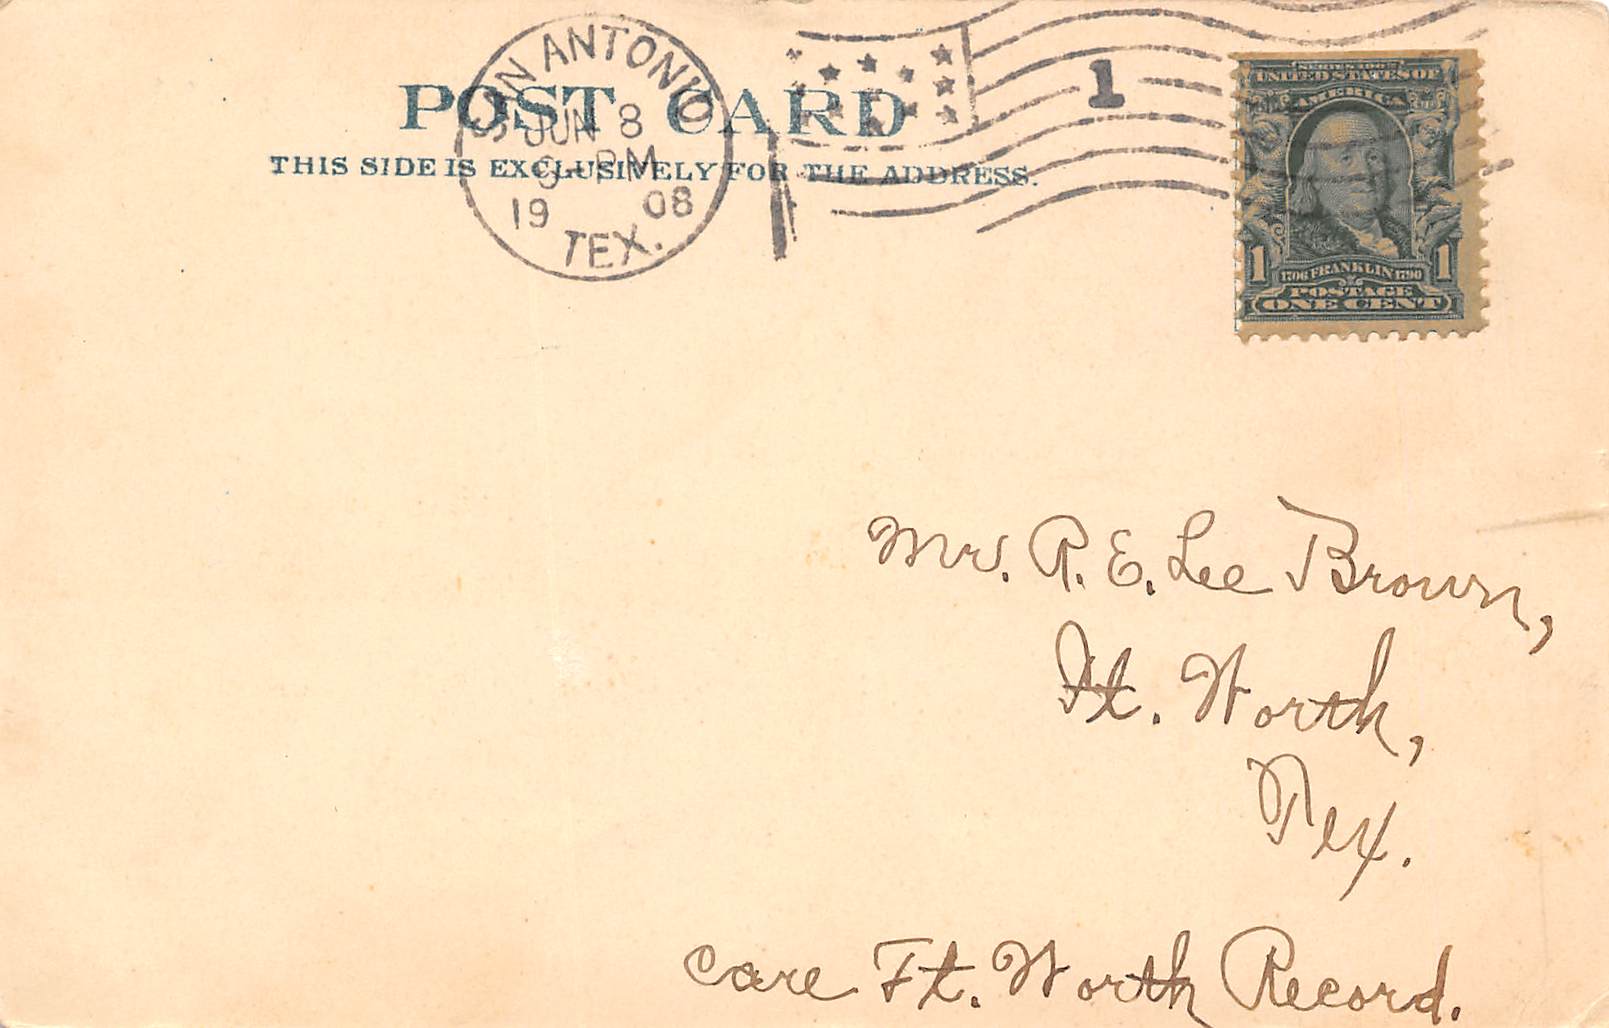 POST CARD
THIS SIDE IS EXCLUSIVELY FOR THE ADDRESS.
SAN ANTONIO
JUN 8
PM
19 08
TEX.
1
SERIES 1902
UNITED STATES OF
AMERICA
1 1706 FRANKLIN 1790 1
POSTAGE
ONE CENT
Mr. R. E. Lee Brown,
Ft. Worth,
Tex.
Care Ft. Worth Record.